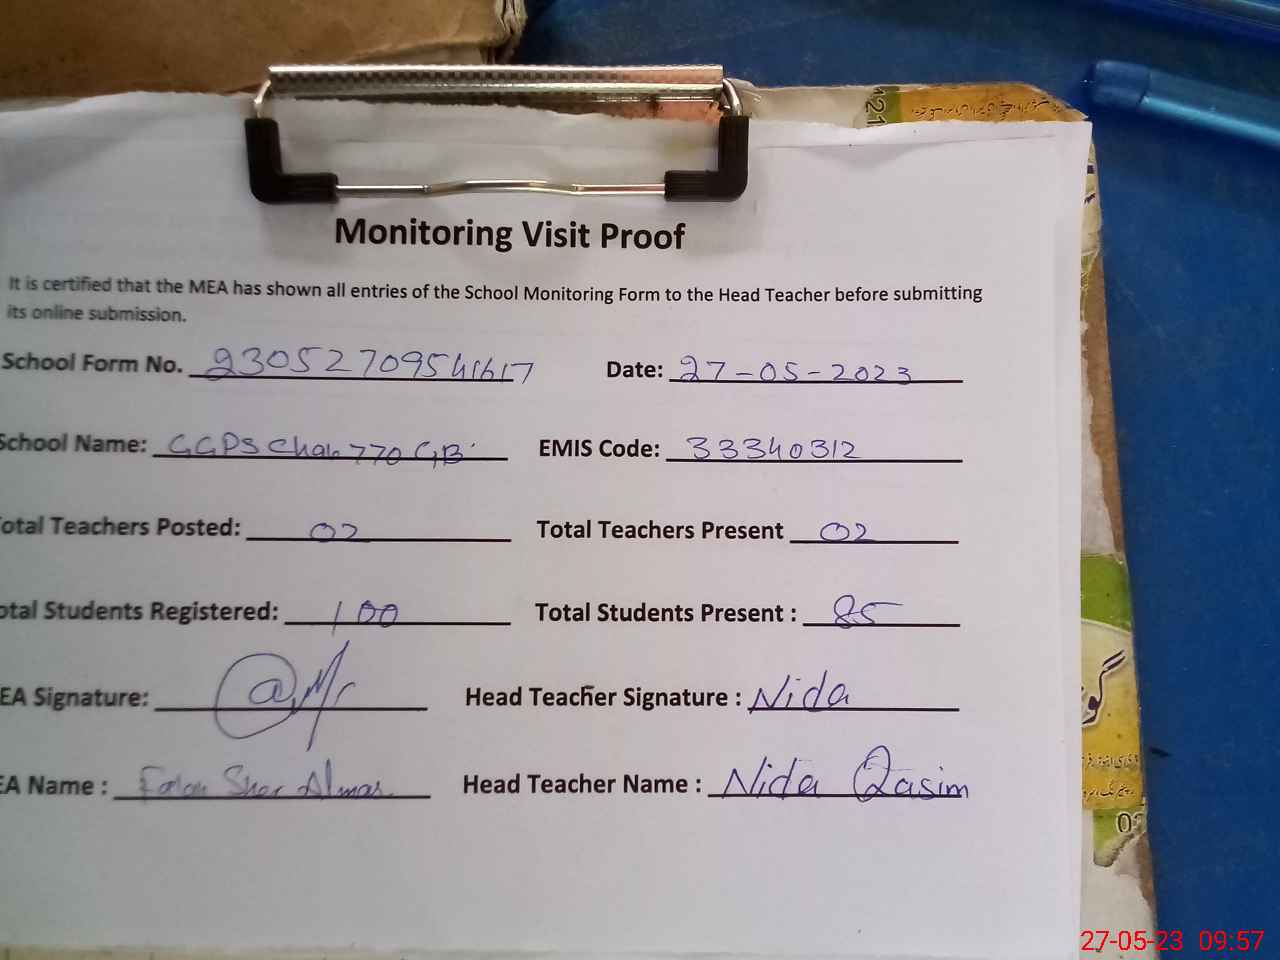 Monitoring Visit Proof
It is certified that the MEA has shown all entries of the School Monitoring Form to the Head Teacher before submitting
its online submission.
School Form No. 23052709541617 Date: 27-05-2023
School Name: GGPS Chak 770 GB EMIS Code: 33340312
otal Teachers Posted: 02 Total Teachers Present 02
otal Students Registered: 100 Total Students Present : 85
EA Signature: Head Teacher Signature : Nida
EA Name : Sher Head Teacher Name : Nida Qasim
27-05-23 09:57